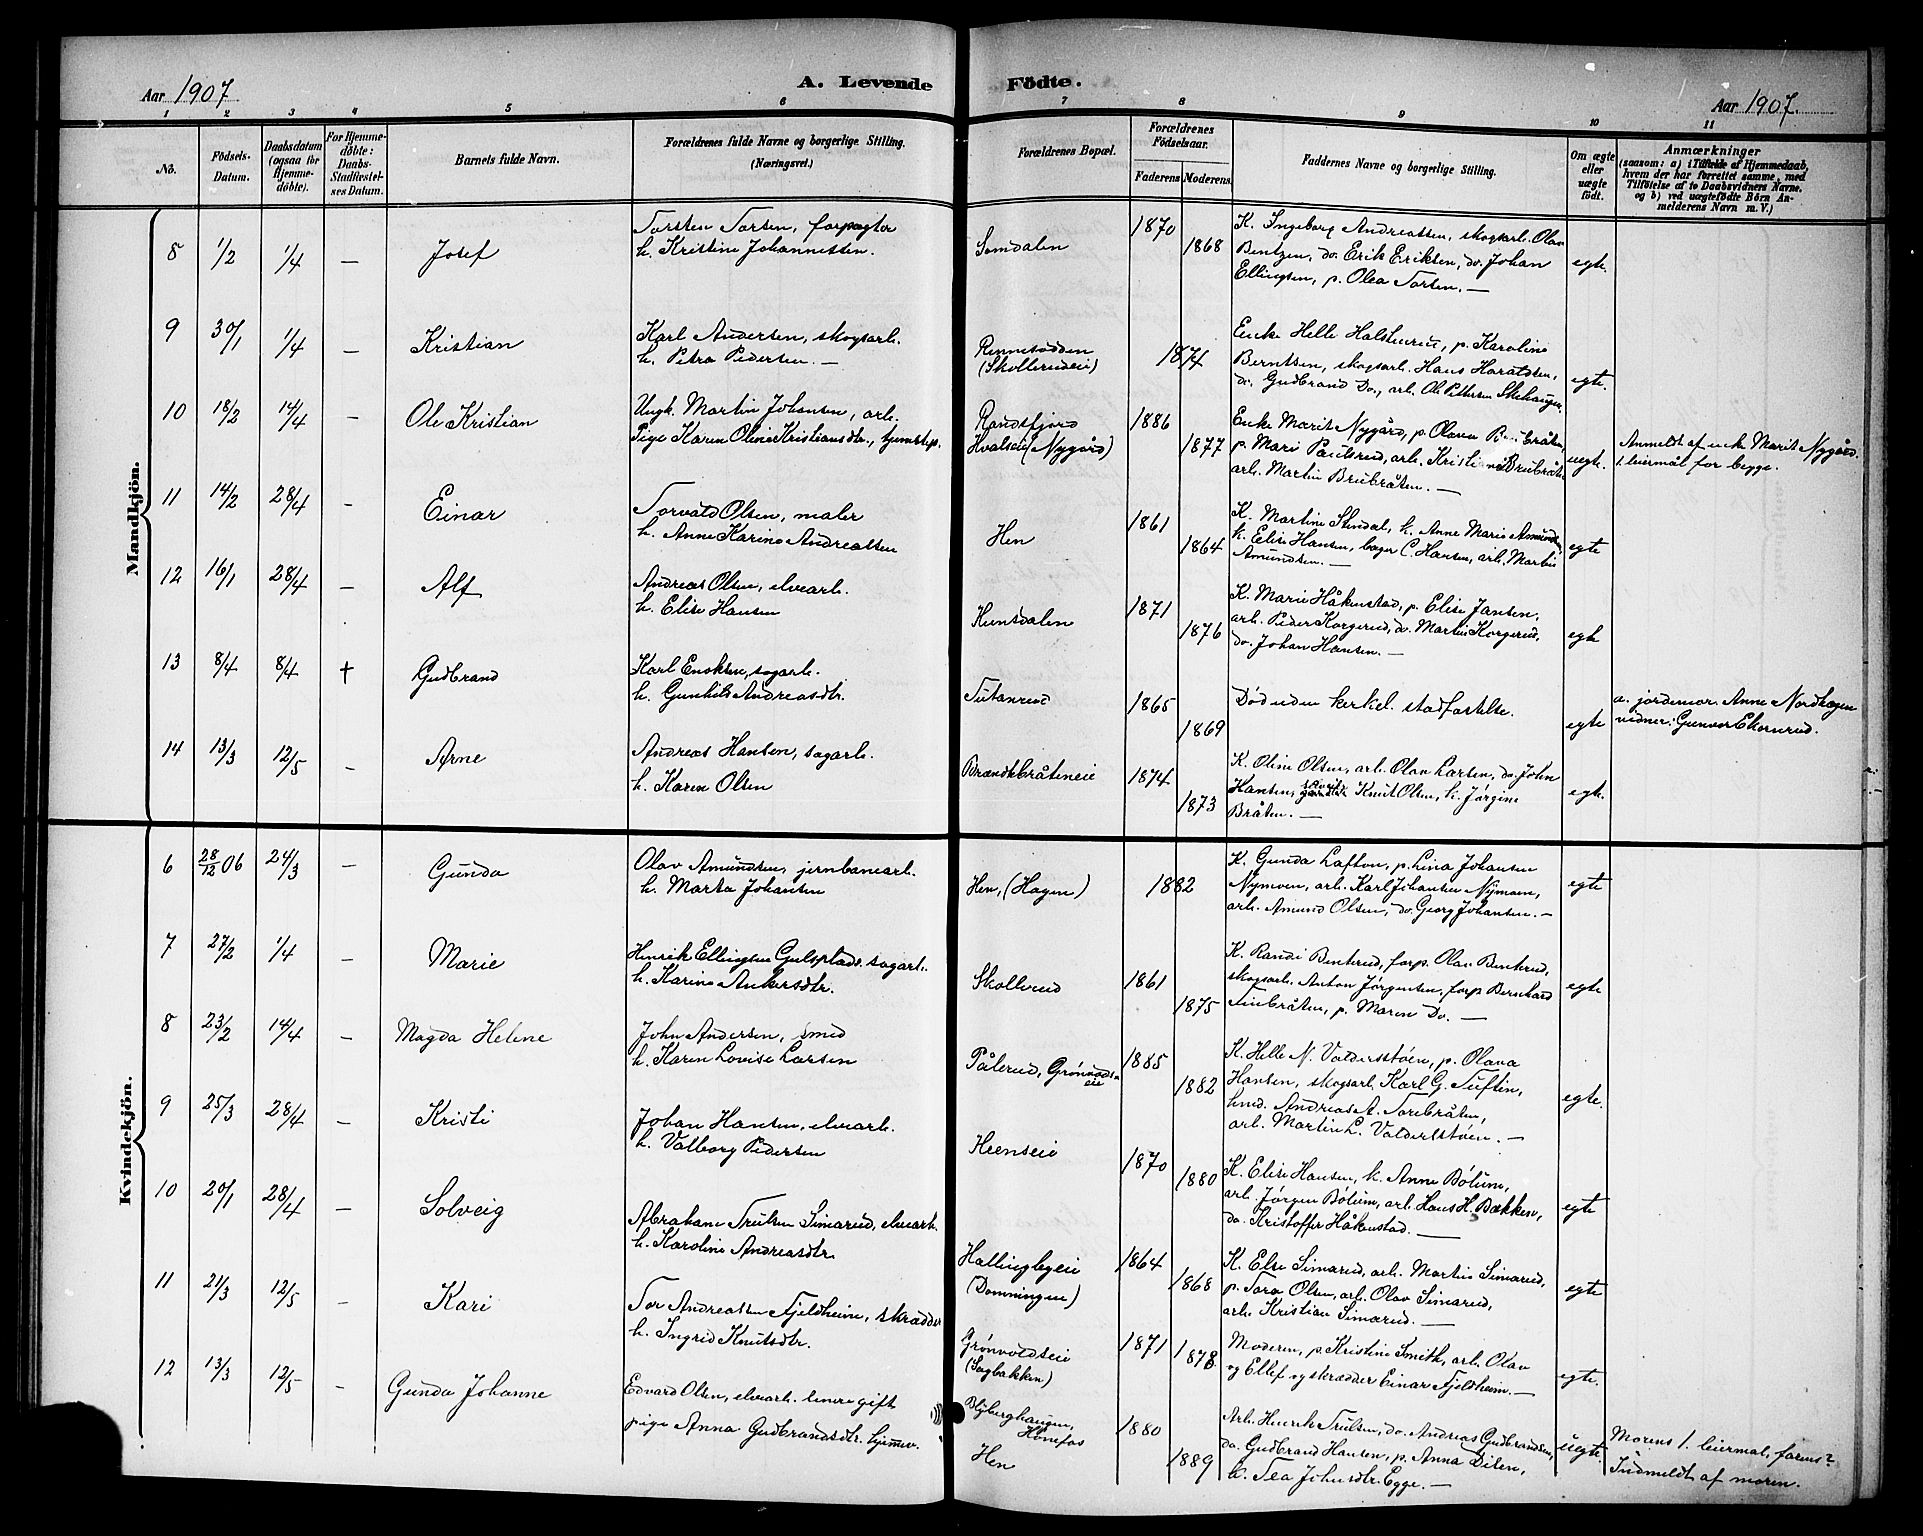 Aar 1907
A. Levende Födte.
Aar 1907.
1 2 3 4 5 6 7 8 9 10 11
No.
Födsels-Datum.
Daabsdatum (ogsaa for Hjemmedöbte).
For Hjemmedöbte: Daabs-Stadfæstelses Datum.
Barnets fulde Navn.
Forældrenes fulde Navne og borgerlige Stilling.
(Næringsvei.)
Forældrenes Bopæl.
Forældrenes Födselsaar.
Faderens. Moderens.
Faddernes Navne og borgerlige Stilling.
Om ægte eller uægte födt.
Anmærkninger
(saasom: a) i Tilfælde af Hjemmedaab,
hvem der har forrettet samme, med
Tilföielse af to Daabsvidners Navne.
og b) ved uægtefödte Börn An-
melderens Navn m. V.)
Mandkjön.
8 1/2 1/4 — Josef
Torsten Torsen, forpagter
h. Kristine Johannessen.
Somdalen
1870 1868
K. Ingeborg Andreassen, skogsarb. Olav
Bentzen, do. Erik Eriksen, do. Johan
Ellingsen, p. Olea Torsen. —
egte.
9 30/1 1/4 — Kristian
Karl Andersen, skogsarb.
h. Petra Pedersen. —
(Skollerudeie)
1874
Enke Helle Halstenrud, p. Karoline
Berntsen, skogsarb. Hans Haraldsen,
do. Gudbrand Do., arb. Ole Pettersen
egte.
10 18/2 14/4 — Ole Kristian
Ungk. Martin Johansen, arb.
Pige Karen Oline Kristiansdtr., tjenestep.
Randsfjord
Hvalseie (Nygård)
1886 1877
Enke Marit Nygård, p. Olava Brubråten,
p. Mari Paulsrud, arb. Kristian Brubråten
arb. Martin Brubråten. —
uegte.
Anmeldt af enke Marit Nygård.
1. leiermål for begge.
11 14/2 28/4 — Einar
Torvald Olsen, maler
h. Anne Karine Andreassen
Hen
1861 1864
K. Martine Stendal, k. Anne Marie Amundsen,
k. Elise Hansen, bager C. Hansen, arb. Martin
Amundsen. —
egte
12 16/1 28/4 — Alf
Andreas Olsen, elvearb.
h. Elise Hansen
Hensdalen
1871 1876
K. Marie Håkenstad, p. Elise Jansen,
arb. Peder Korgerud, do. Martin Korgerud,
do. Johan Hansen. —
egte
13 8/4 8/4 † Gudbrand
Karl Enoksen, sagarb.
h. Gunhild Andreasdtr.
Tutanrud
1865 1869
Død uden kirkel. stadfæstelse.
egte
a. jordemor Anne Nordhagen
vidner: Gunvor Ekornrud.
14 13/3 12/5 — Arne
Andreas Hansen, sagarb.
h. Karen Olsen
Brændtbråteneie
1874 1873
K. Oline Olsen, arb. Olav Larsen, do. John
Hansen, Knut Olsen, k. Jørgine
Bråten. —
egte.
Kvindekjön.
6 28/12 06 24/3 — Gunda
Olav Amundsen, jernbanearb.
h. Marta Johansen
Hen, (Hagen)
1882
K. Gunda Lafton, p. Lina Johansen
Nymoen, arb. Karl Johansen Nymoen,
arb. Amund Olsen, do. Georg Johansen. —
egte
7 27/2 1/4 — Marie
Henrik Ellingsen Gulsplads, sagarb.
h. Karine Ankersdtr.
Skollerud
1861 1875
K. Randi Benterud, forp. Olav Benterud,
skogsarb. Anton Jørgensen, forp. Bernhard
Finbråten, p. Maren Do. —
egte
8 23/2 14/4 — Magda Helene
John Andersen, smed
h. Karen Lovise Larsen
Pålerud, Grønvoldseie
1885 1882
K. Helle N. Valdersstøen, p. Olava
Hansen, skogsarb. Karl G. Tuftin,
hmd. Andreas A. Torebråten,
arb. Martin L. Valdersstøen. —
egte.
9 25/3 28/4 — Kristi
Johan Hansen, elvearb.
h. Valborg Pedersen
Heenseie
1870 1880
K. Elise Hansen, k. Anne Bølum,
arb. Jørgen Bølum, arb. Hans H. Bækken,
do. Kristoffer Håkenstad. —
egte
10 20/1 28/4 — Solveig
Abraham Trulsen Simarud, elvearb.
h. Karoline Andreasdtr.
Hallingbyeie
(Domningen)
1864 1868
K. Else Simarud, arb. Martin Simarud,
p. Tora Olsen, arb. Olav Simarud,
arb. Kristian Simarud. —
egte
11 21/3 12/5 — Kari
Tor Andreassen Fjeldheim, skrædder
h. Ingrid Knutsdtr.
Grønvoldseie
(Sagbakken)
1871 1878
Moderen, p. Kristine Smith, arb. Olav
og Ellef og skrædder Einar Fjeldheim. —
egte.
12 13/3 12/5 — Gunda Johanne
Edvard Olsen, elvearb. senere gift
pige Anna Gudbrandsdtr. hjemmev.
Blyberghaugen,
Hønefos
Hen
1880 1889
Arb. Henrik Trulsen, do. Andreas Gudbrandsen,
do. Gudbrand Hansen, p. Anna Dilen,
k. Tea Johnsdtr. Egge. —
uegte.
Morens 1. leiermål, farens?
Indmeldt af moren.